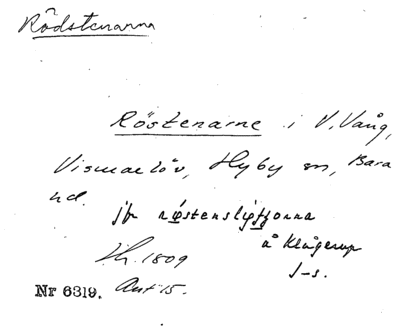 Rödstenarna
Röstenarne i V. Vång,
Vismarlöv, Hyby sn, Bara
hd.
jfr røstensljøjorna
å Klågerup
Lh. 1809
s-s.
Nr 6319. Aut 15.